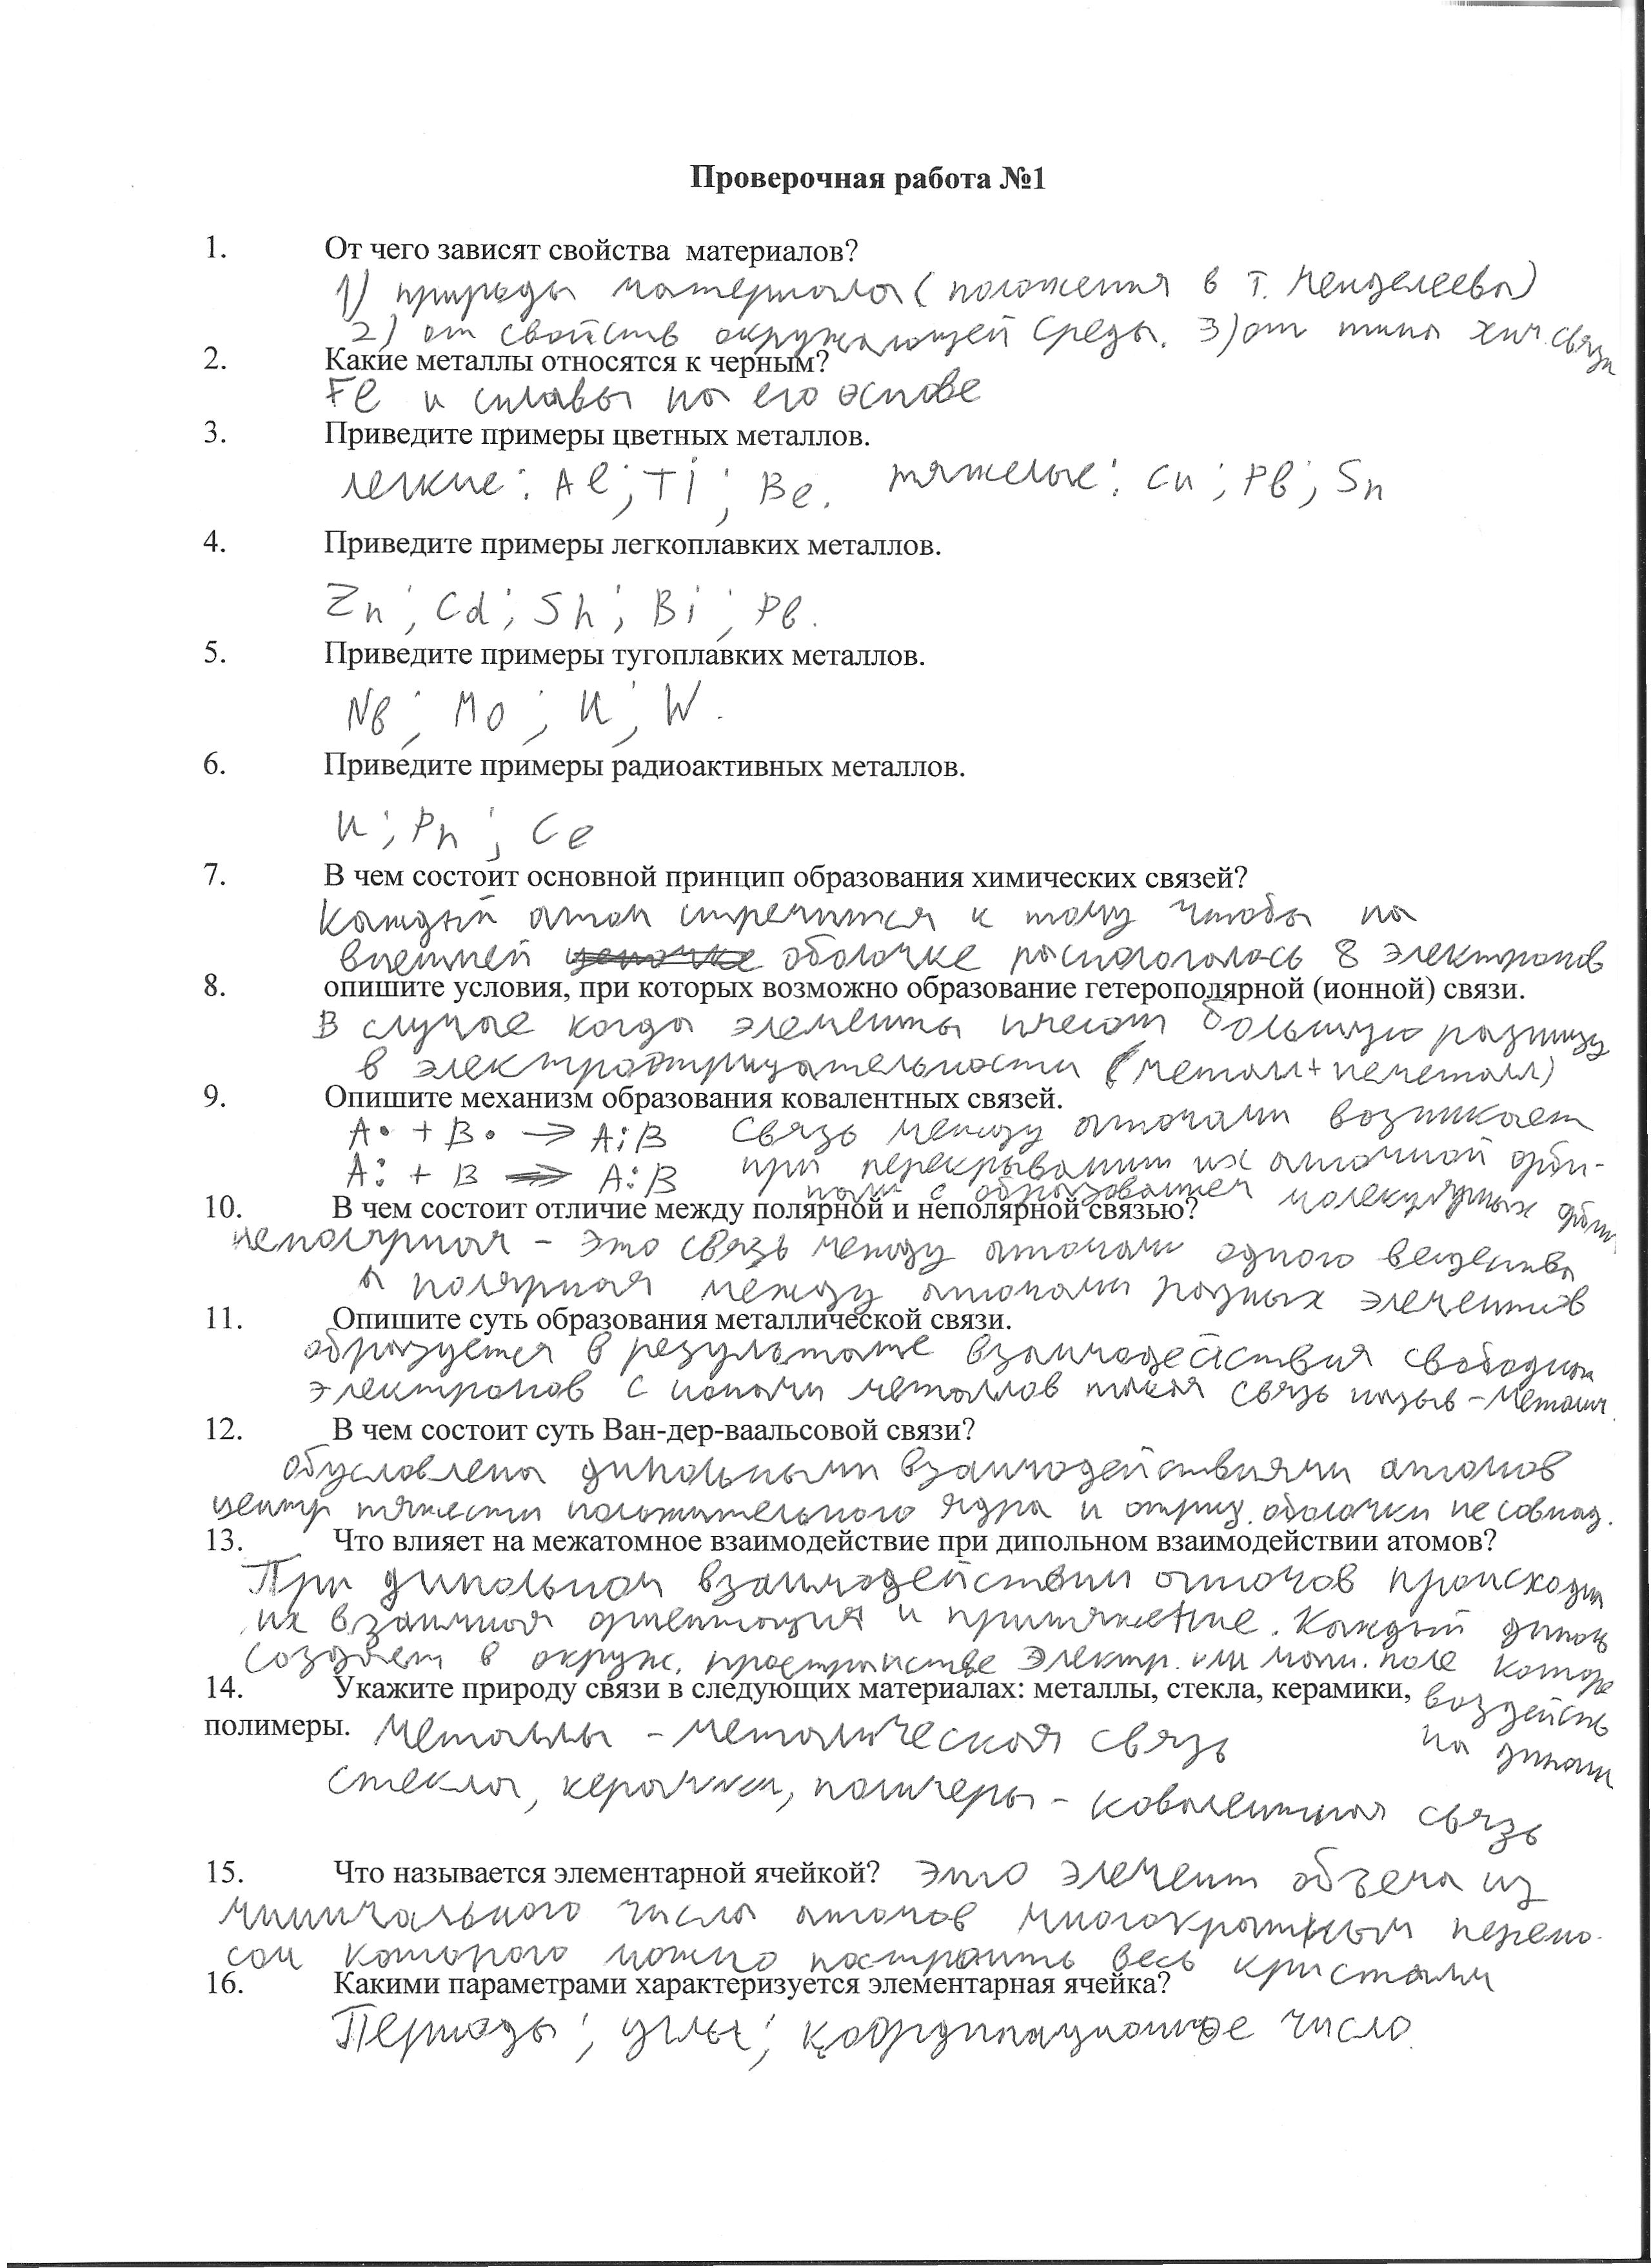 Проверочная работа №1
1. От чего зависят свойства материалов?
1) природы материала (положения в т. Менделеева)
2) от свойств окружающей среды. 3) от типа хим. связи
2. Какие металлы относятся к черным?
Fe и сплавы на его основе
3. Приведите примеры цветных металлов.
легкие: Al; Ti; Be. тяжелые: Cu; Pb; Sn
4. Приведите примеры легкоплавких металлов.
Zn; Cd; Sn; Bi; Pb.
5. Приведите примеры тугоплавких металлов.
Nb; Mo; U; W.
6. Приведите примеры радиоактивных металлов.
U; Pn; Ce
7. В чем состоит основной принцип образования химических связей?
Каждый атом стремится к тому чтобы на
внешней оболочке распологолась 8 электронов
8. опишите условия, при которых возможно образование гетерополярной (ионной) связи.
В случае когда элементы имеют большую разницу
в электроотрицательности (металл + неметалл)
9. Опишите механизм образования ковалентных связей.
A• + B• → A:B связь между атомами возникает
A: + B → A:B при перекрывании их атомной орби-
тали с образованием молекулярных
10. В чем состоит отличие между полярной и неполярной связью?
неполярная – это связь между атомами одного вещества
а полярная между атомами разных элементов
11. Опишите суть образования металлической связи.
образуется в результате взаимодействия свободных
электронов с ионами металлов такая связь назыв – металич.
12. В чем состоит суть Ван-дер-ваальсовой связи?
Обусловлена дипольными взаимодействиями атомов
центр тяжести положительного ядра и отриц. оболочки не совпад.
13. Что влияет на межатомное взаимодействие при дипольном взаимодействии атомов?
При дипольном взаимодействии атомов происходит
их взаимная ориентация и притяжение. Каждый диполь
создает в окруж. пространстве электр. или магн. поле которе
14. Укажите природу связи в следующих материалах: металлы, стекла, керамики, воздейств
полимеры. Металлы – металическая связь на диполи
стекла, керамики, полимеры – ковалентная связь
15. Что называется элементарной ячейкой? Это элемент объема из
минимального числа атомов многократным перено-
сом которого можно построить весь кристалл
16. Какими параметрами характеризуется элементарная ячейка?
Периоды; углы; координационное число.